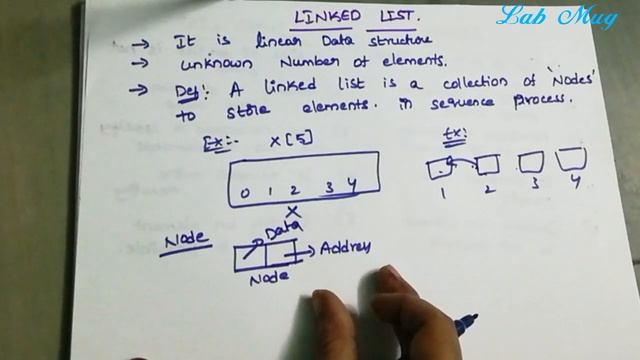 Lab Mug
LINKED LIST.
→ It is linear Data structure
→ unknown Number of elements.
→ Def:- A linked list is a collection of 'Nodes'
to store elements. in sequence process.
Ex:- X[5]
Ex:-
0 1 2 3 4
1 2 3 4
X
Node
Data
→ Address
Node